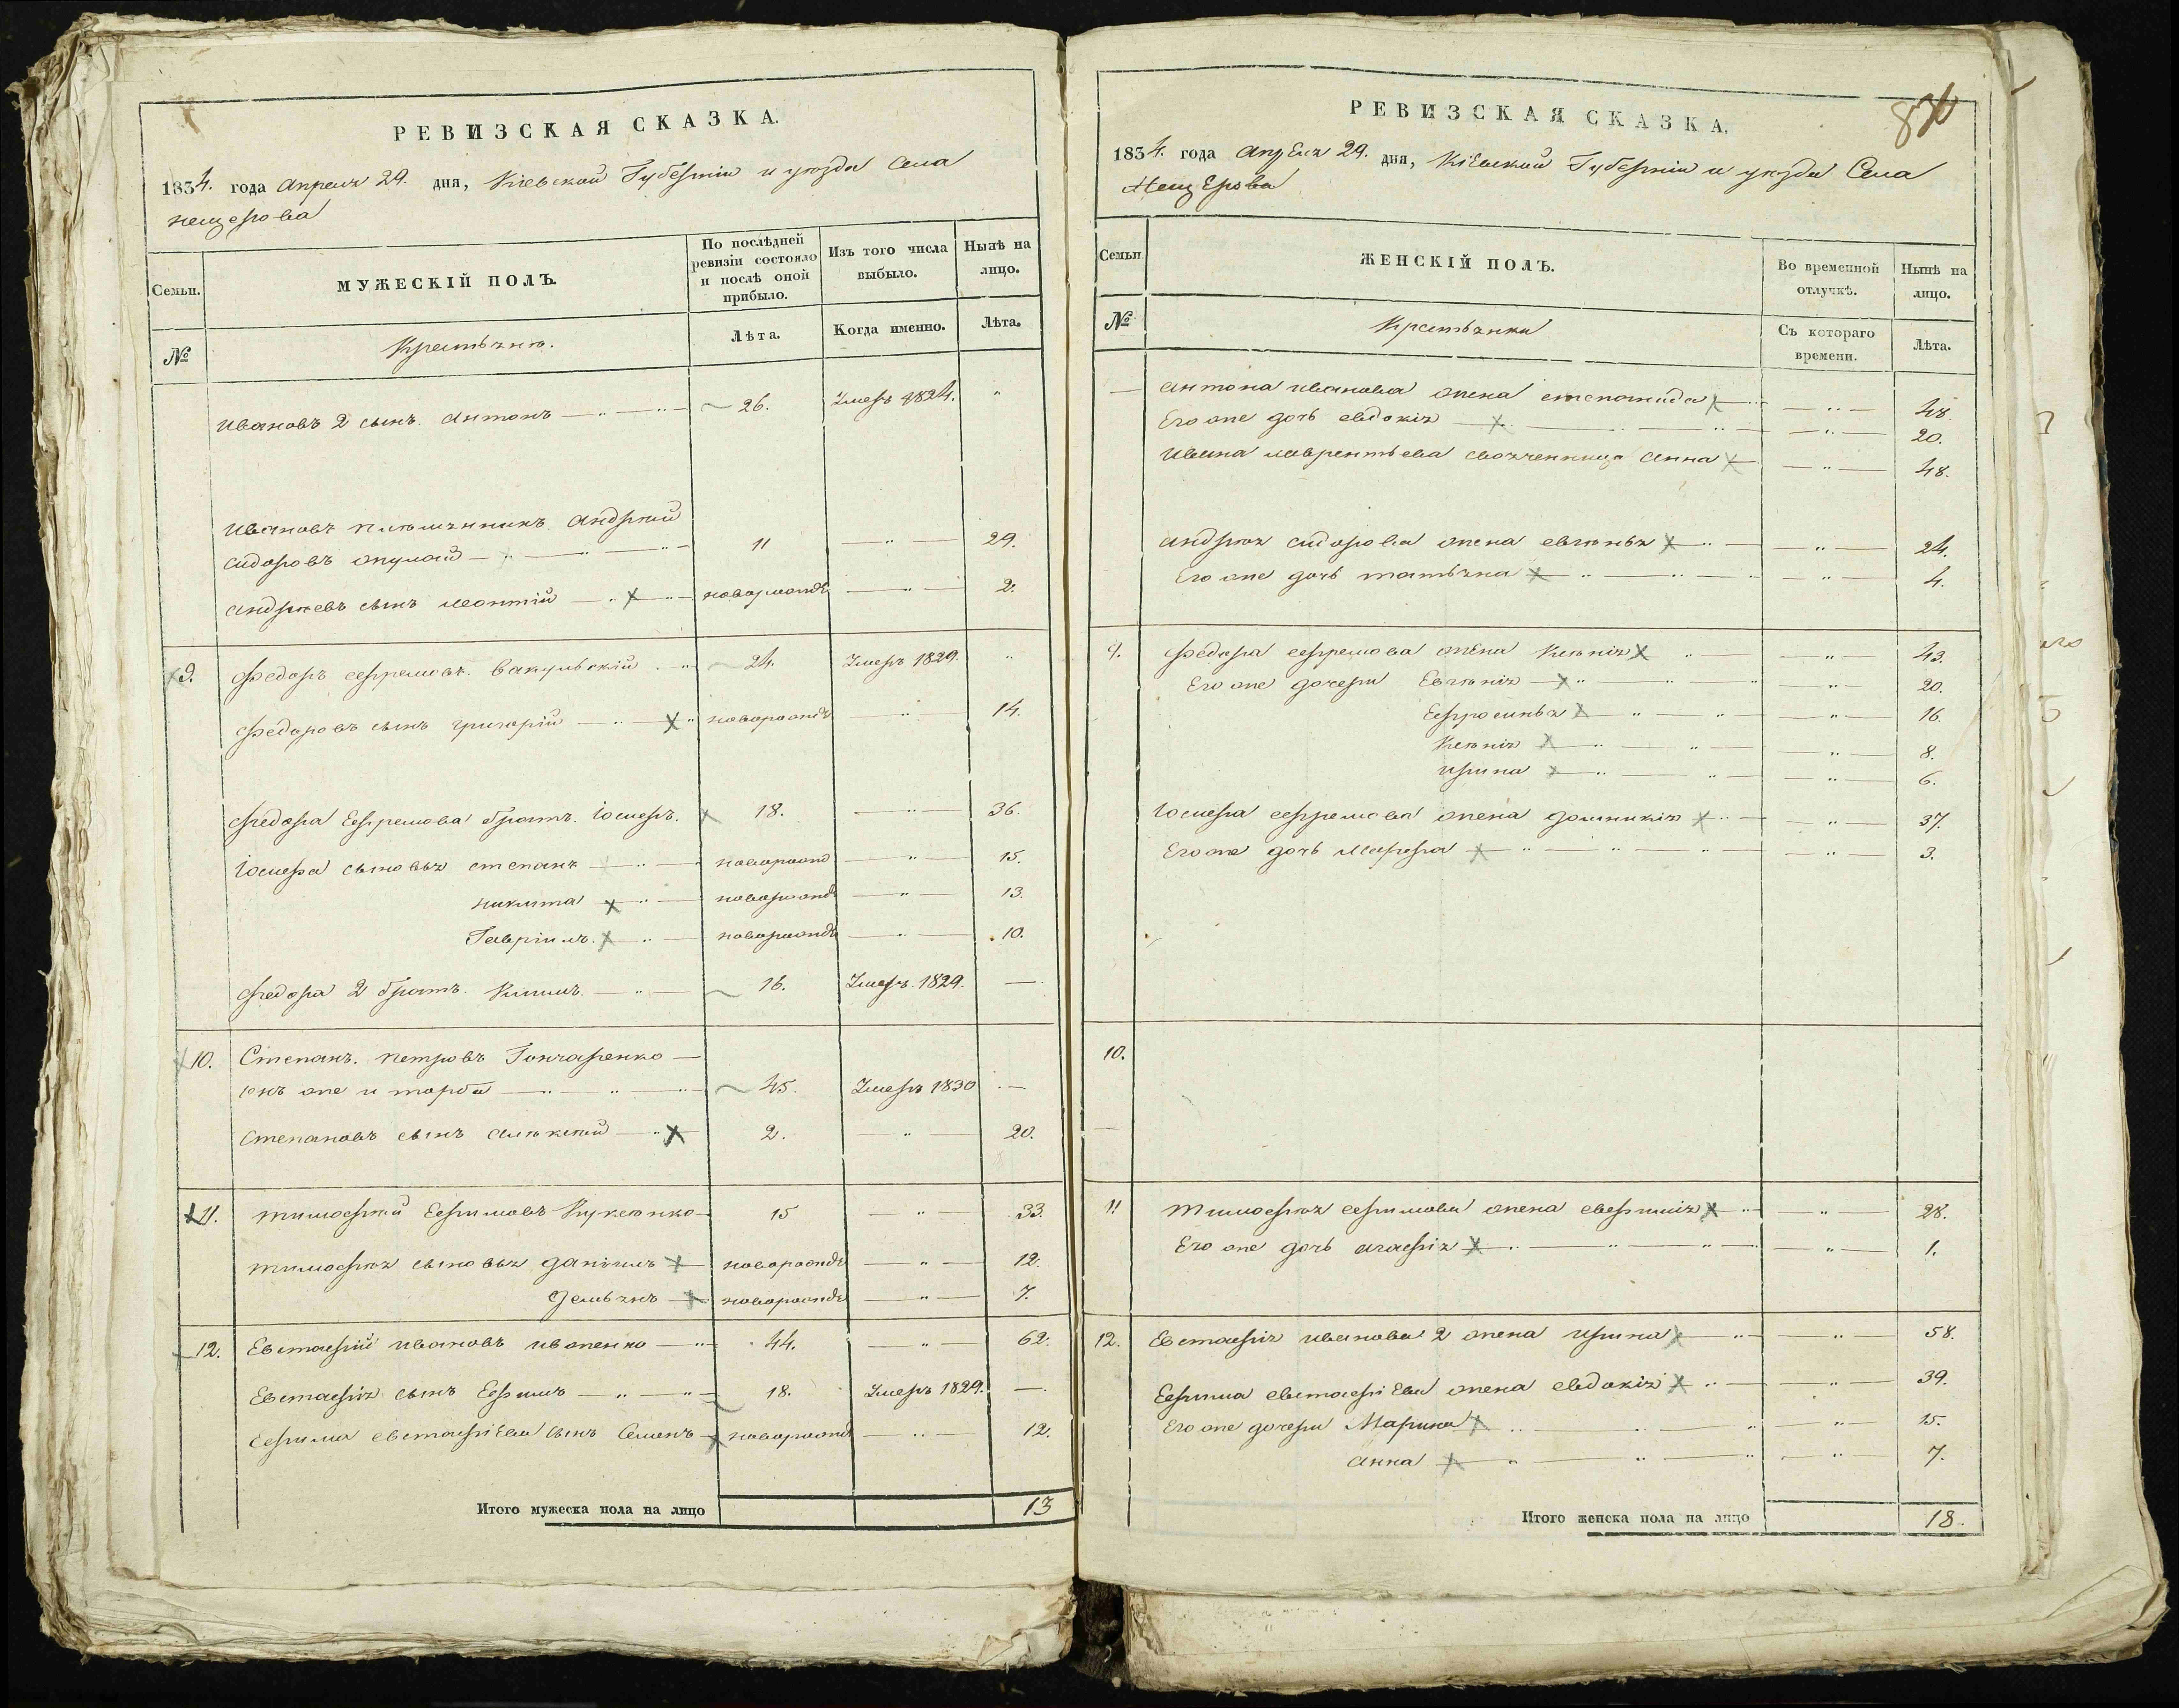 РЕВИЗСКАЯ СКАЗКА.
1834. года Апреля 29. дня, Кіевской Губерніи и уезда Села
нещерова
Семьи. МУЖЕСКІЙ ПОЛЪ. По послѣдней ревизіи состояло и послѣ оной прибыло. Изъ того числа выбыло. Нынѣ на лицо.
№ Крестьяне. Лѣта. Когда именно. Лѣта.
Ивановъ 2 сынъ Антонъ 26. Умеръ 1824. "
Ивановъ племянникъ Андрей
Сидоровъ 11 29.
Андреевъ сынъ леонтій новорожд 2.
9. Федоръ Ефремовъ Вакульскій 24. Умеръ 1829. "
Федоровъ сынъ григорій новорожд 14.
Федора Ефремова братъ Іосифъ. 18. 36.
Іосифа сыновья степанъ новорожд 15.
никита новорожд 13.
Гавріилъ новорожд 10.
Федора 2 братъ Кирилъ 16. Умеръ 1829.
10. Степанъ Петровъ Гончаренко
онъ же и торба 45. Умеръ 1830
Степановъ сынъ алексей 2. 20.
11. Тимофей Ефимовъ 15 33.
Тимофея сыновья даніилъ новорожд 12.
Демьянъ новорожд 7.
12. Евстафій ивановъ иваненко 44. 62.
Евстафія сынъ Ефимъ 18. Умеръ 1829.
Ефима евстафіева сынъ Семенъ новорожд 12.
Итого мужеска пола на лицо 13
836
РЕВИЗСКАЯ СКАЗКА.
1834. года Апреля 29. дня, Кіевской Губерніи и уезда Села
Нещерова
Семьи. ЖЕНСКІЙ ПОЛЪ. Во временной отлучкѣ. Нынѣ на лицо.
№ Крестьянки Съ котораго времени. Лѣта.
Антона иванова жена степанида 48.
Его же дочь евдокія 20.
Ивана лаврентьева свояченица Анна 48.
Андрея сидорова жена евгенья 24.
Его же дочь татьяна 4.
9. Федора ефремова жена Ксенія 43.
Его же дочери Евгенія 20.
Ефросинья 16.
Ксенія 8.
ирина 6.
Іосифа ефремова жена доминикія 37.
Его же дочь Марфа 3.
10.
11 Тимофея ефимова жена евфимія 28.
Его же дочь агафія 1.
12. Евстафія иванова 2 жена Ирина 58.
Ефима евстафіева жена евдокія 39.
Его же дочери Марина 15.
анна 7.
Итого женска пола на лицо 18.